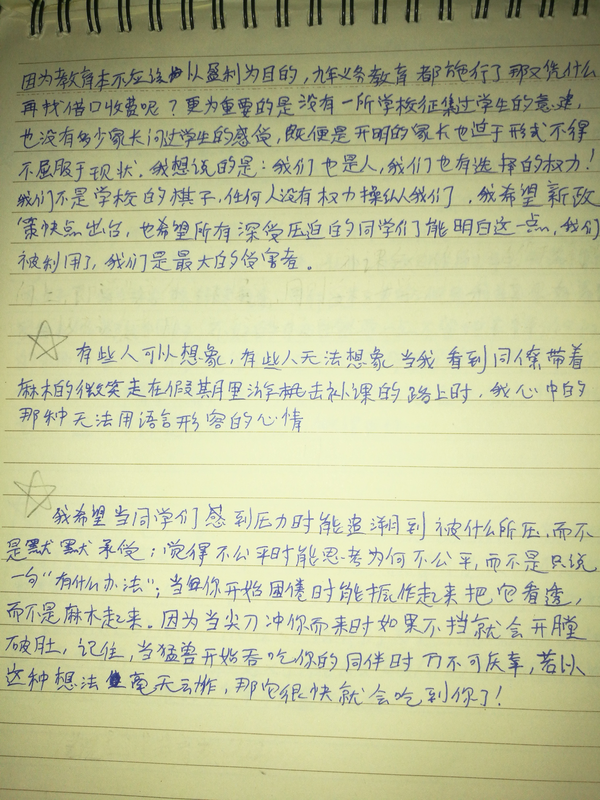 因为教育本不应该以盈利为目的，九年义务教育都施行了那又凭什么
再找借口收费呢？更为重要的是没有一所学校征集过学生的意见，
也没有多少家长问过学生的感受，既便是开明的家长也迫于形式不得
不屈服于现状。我想说的是：我们也是人，我们也有选择的权力！
我们不是学校的棋子，任何人没有权力操纵我们，我希望新政
策快点出台，也希望所有深受压迫的同学们能明白这一点，我们
被利用了，我们是最大的受害者。
有些人可以想象，有些人无法想象当我看到同僚带着
麻木的微笑走在假期里去补课的路上时，我心中的
那种无法用语言形容的心情
我希望当同学们感到压力时能追溯到被什么所压，而不
是默默承受；觉得不公平时能思考为何不公平，而不是只说
一句“有什么办法”；当你开始困倦时能振作起来把它看透，
而不是麻木起来。因为当尖刀冲你而来时如果不挡就会开膛
破肚，记住，当猛兽开始吞吃你的同伴时万不可庆幸，若以
这种想法毫无动作，那它很快就会吃到你了！